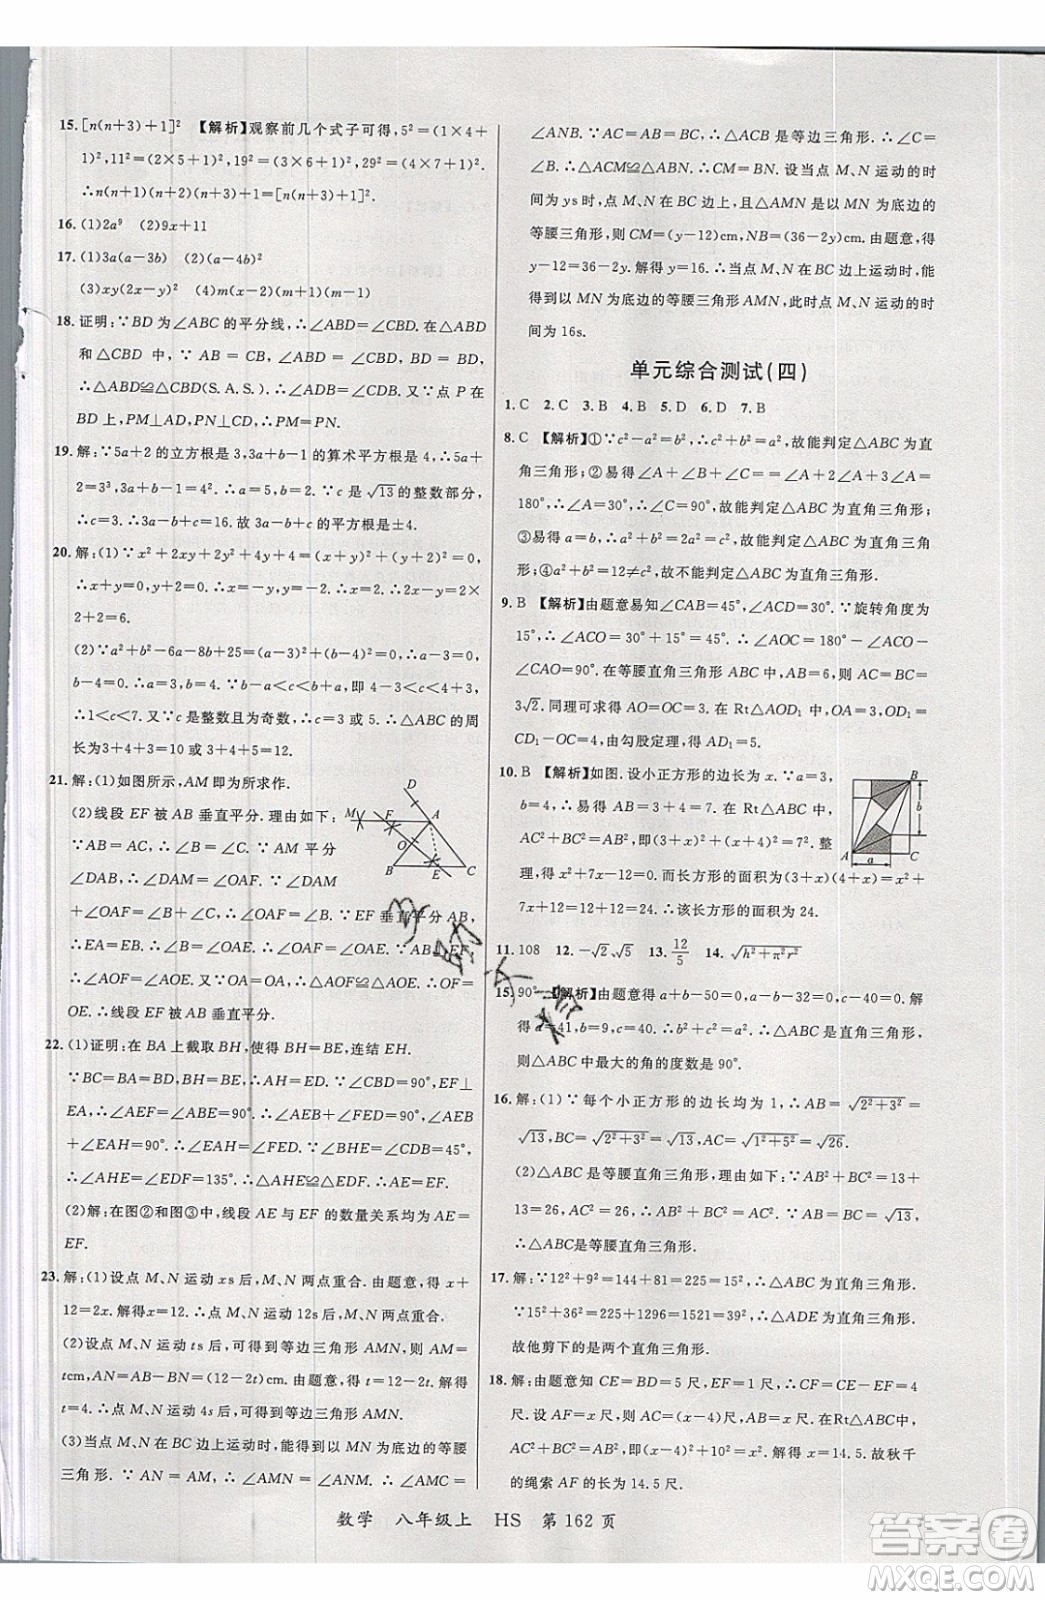 15.[n(n+3)+1]² 【解析】观察前几个式子可得,5²=(1×4+
1)²,11²=(2×5+1)²,19²=(3×6+1)²,29²=(4×7+1)².
∴n(n+1)(n+2)(n+3)+1=[n(n+3)+1]².
16.(1)2a⁹ (2)9x+11
17.(1)3a(a-3b) (2)(a-4b)²
(3)xy(2x-y)² (4)m(x-2)(m+1)(m-1)
18.证明:∵BD为∠ABC的平分线,∴∠ABD=∠CBD.在△ABD
和△CBD中,∵AB=CB,∠ABD=∠CBD,BD=BD,
∴△ABD≌△CBD(S.A.S.).∴∠ADB=∠CDB.又∵点P在
BD上,PM⊥AD,PN⊥CD,∴PM=PN.
19.解:∵5a+2的立方根是3,3a+b-1的算术平方根是4,∴5a+
2=3³,3a+b-1=4².∴a=5,b=2.∵c是√13的整数部分,
∴c=3.∴3a-b+c=16.故3a-b+c的平方根是±4.
20.解:(1)∵x²+2xy+2y²+4y+4=(x+y)²+(y+2)²=0,
∴x+y=0,y+2=0.解得x=2,y=-2.∴2x-y=2×2+
2=6.
(2)∵a²+b²-6a-8b+25=0,∴(a-3)²+(b-4)²=0.∴a-3=0,
b-4=0.∴a=3,b=4.∵b-a<c<b+a,∴4-3<c<3+4,即
1<c<7.又∵c是整数且为奇数,∴c=3或5.∴△ABC的周
长为3+4+3=10或3+4+5=12.
21.解:(1)如图所示,AM即为所求作.
(2)线段EF被AB垂直平分.理由如下:
∵AB=AC,∴∠B=∠C.∵AM平分
∠DAB,∴∠DAF=∠FAB.∵∠DAM
+∠OAF=∠B+∠C,∴∠OAF=∠B.∵EF垂直平分AB,
∴EA=EB.∴∠B=∠OAE.∴∠OAF=∠OAE.∵AB⊥EF,
∴∠AOF=∠AOE.又∵AO=AO,∴△AOF≌△AOE.∴OF=
OE.∴线段EF被AB垂直平分.
D
M
F
A
O
B
E
C
22.(1)证明:在BA上截取BH,使得BH=BE,连结EH.
∵BC=BA=BD,BH=BE,∴AH=CE.∵∠CBD=90°,EF⊥
AE,∴∠BEH=∠BHE=45°,∠AEF=∠ABE=90°.∴∠AEB
+∠EAH=90°.∴∠EAH=∠FED.∵BC=BD,∠CBD=90°,∴∠CDB=45°.
∴∠AHE=∠FDE=135°.∴△AHE≌△EDF.∴AE=EF.
(2)解:在图②和图③中,线段AE与EF的数量关系均为AE=
EF.
23.解:(1)设点M、N运动xs后,M、N两点重合.由题意,得x+
12=2x.解得x=12.∴点M、N运动12s后,M、N两点重合.
(2)设点M、N运动ts后,可得到等边三角形AMN,则AM=
tcm,AN=AB-BN=(12-2t)cm.由题意,得t=12-2t.解得
t=4.∴点M、N运动4s后,可得到等边三角形AMN.
(3)当点M、N在BC边上运动时,能得到以MN为底边的等腰
三角形.∵AN=AM,∴∠AMN=∠ANM.∴∠AMC=
∠ANB.∵AC=AB=BC,∴△ACB是等边三角形.∴∠C=
∠B.∴△ACM≌△ABN.∴CM=BN.设当点M、N运动的时
间为ys时,M、N在BC边上,且△AMN是以MN为底边的
等腰三角形,∴CM=(y-12)cm,NB=(36-2y)cm.由题意,得
y-12=36-2y.解得y=16.∴当点M、N在BC边上运动时,能
得到以MN为底边的等腰三角形AMN,此时点M、N运动的时
间为16s.
单元综合测试(四)
1.C 2.C 3.B 4.B 5.D 6.D 7.B
8.C 【解析】①∵c²-a²=b²,∴c²+b²=a²,故能判定△ABC为直
角三角形;②易得∠A+∠B+∠C=∠A+2∠A+3∠A=
180°,∴∠A=30°,∴∠C=90°,故能判定△ABC为直角三角形;
③易得a=b,∴a²+b²=2a²=c²,故能判定△ABC为直角三角
形;④a²+b²=12≠c²,故不能判定△ABC为直角三角形.
9.B 【解析】由题意易知∠CAB=45°,∠ACD=30°.∵旋转角度为
15°,∴∠ACO=30°+15°=45°,∴∠AOC=180°-∠ACO-
∠CAO=90°.在等腰直角三角形ABC中,AB=6,则AC=BC=
3√2.同理可求得AO=OC=3.在Rt△AOD₁中,OA=3,OD₁=
CD₁-OC=4,由勾股定理,得AD₁=5.
10.B 【解析】如图.设小正方形的边长为x.∵a=3,
b=4,∴易得AB=3+4=7.在Rt△ABC中,
AC²+BC²=AB²,即(3+x)²+(x+4)²=7².整
理,得x²+7x-12=0.而长方形的面积为(3+x)(4+x)=x²+
7x+12=12+12=24.∴该长方形的面积为24.
B
b
A
a
C
11.108 12.-√2,√5 13.12/5 14.√(h²+π²r²)
15.90° 【解析】由题意得a+b-50=0,a-b-32=0,c-40=0,解
得a=41,b=9,c=40.∴b²+c²=a².∴△ABC是直角三角形,
则△ABC中最大的角的度数是90°.
16.解:(1)∵每个小正方形的边长均为1,∴AB=√(2²+3²)=
√13,BC=√(2²+3²)=√13,AC=√(1²+5²)=√26.
(2)△ABC是等腰直角三角形,理由如下:∵AB²+BC²=13+13=
26,AC²=26,∴AB²+BC²=AC².∵AB=BC=√13,
∴△ABC是等腰直角三角形.
17.解:∵12²+9²=144+81=225=15²,∴△ABC是直角三角形.
∵15²+36²=225+1296=1521=39²,∴△ADE为直角三角形.
故他剪下的是两个直角三角形.
18.解:由题意知CE=BD=5尺,AE=1尺,∴AC=CE-AE=4
尺.设AF=AB=x尺,则AC=(x-4)尺.在Rt△ABC中,
AC²+BC²=AB²,即(x-4)²+10²=x².解得x=14.5.故秋千
的绳索AF的长为14.5尺.
数学 八年级上 HS 第162页
答案圈
MXQE.COM